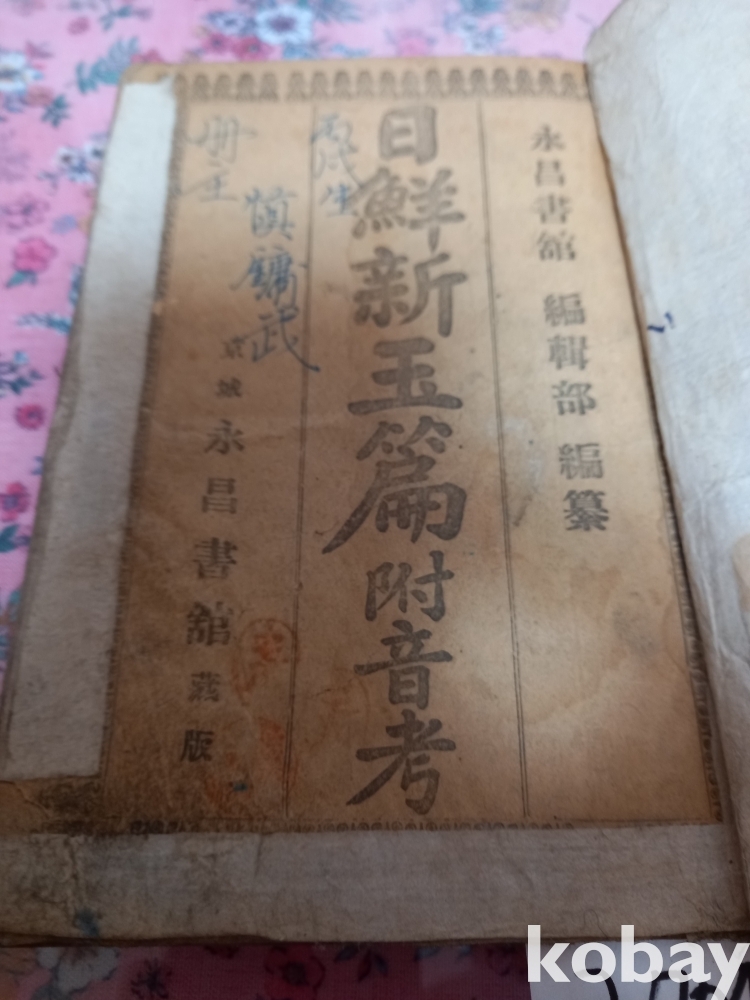 永昌書館 編輯部 編纂
日鮮新玉篇 附音考
京城 永昌書舘 藏版
丙戌生
慎鏞武
冊主
kobay